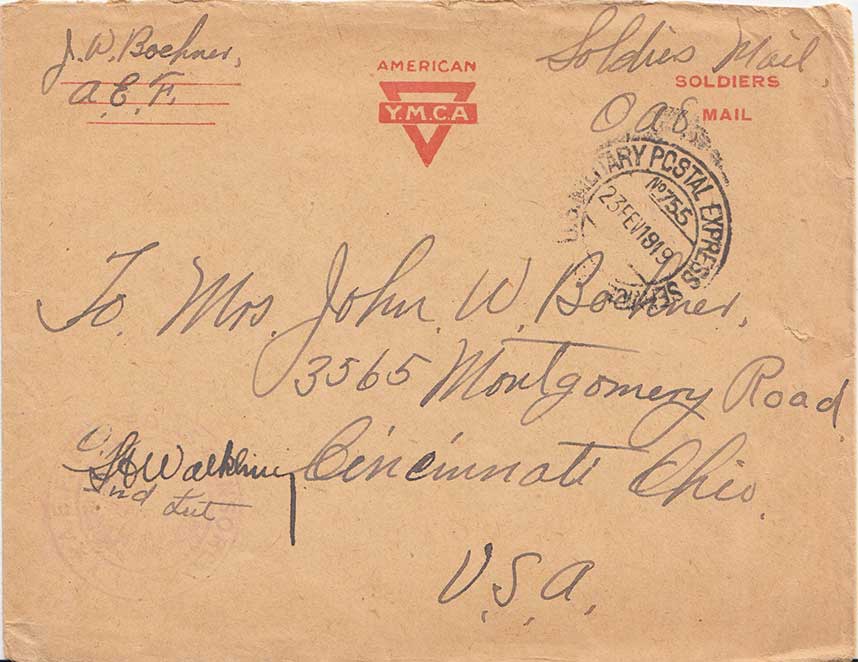 J. W. Boehner,
A. E. F.
AMERICAN
Y.M.C.A
Soldies Mail,
SOLDIERS
MAIL
O a S
U.S. MILITARY POSTAL EXPRESS SERVICE
No 755
23 FEV 1919
To Mrs. John W. Boehner,
3565 Montgomery Road
Cincinnati Ohio.
2nd Lut
U.S.A.